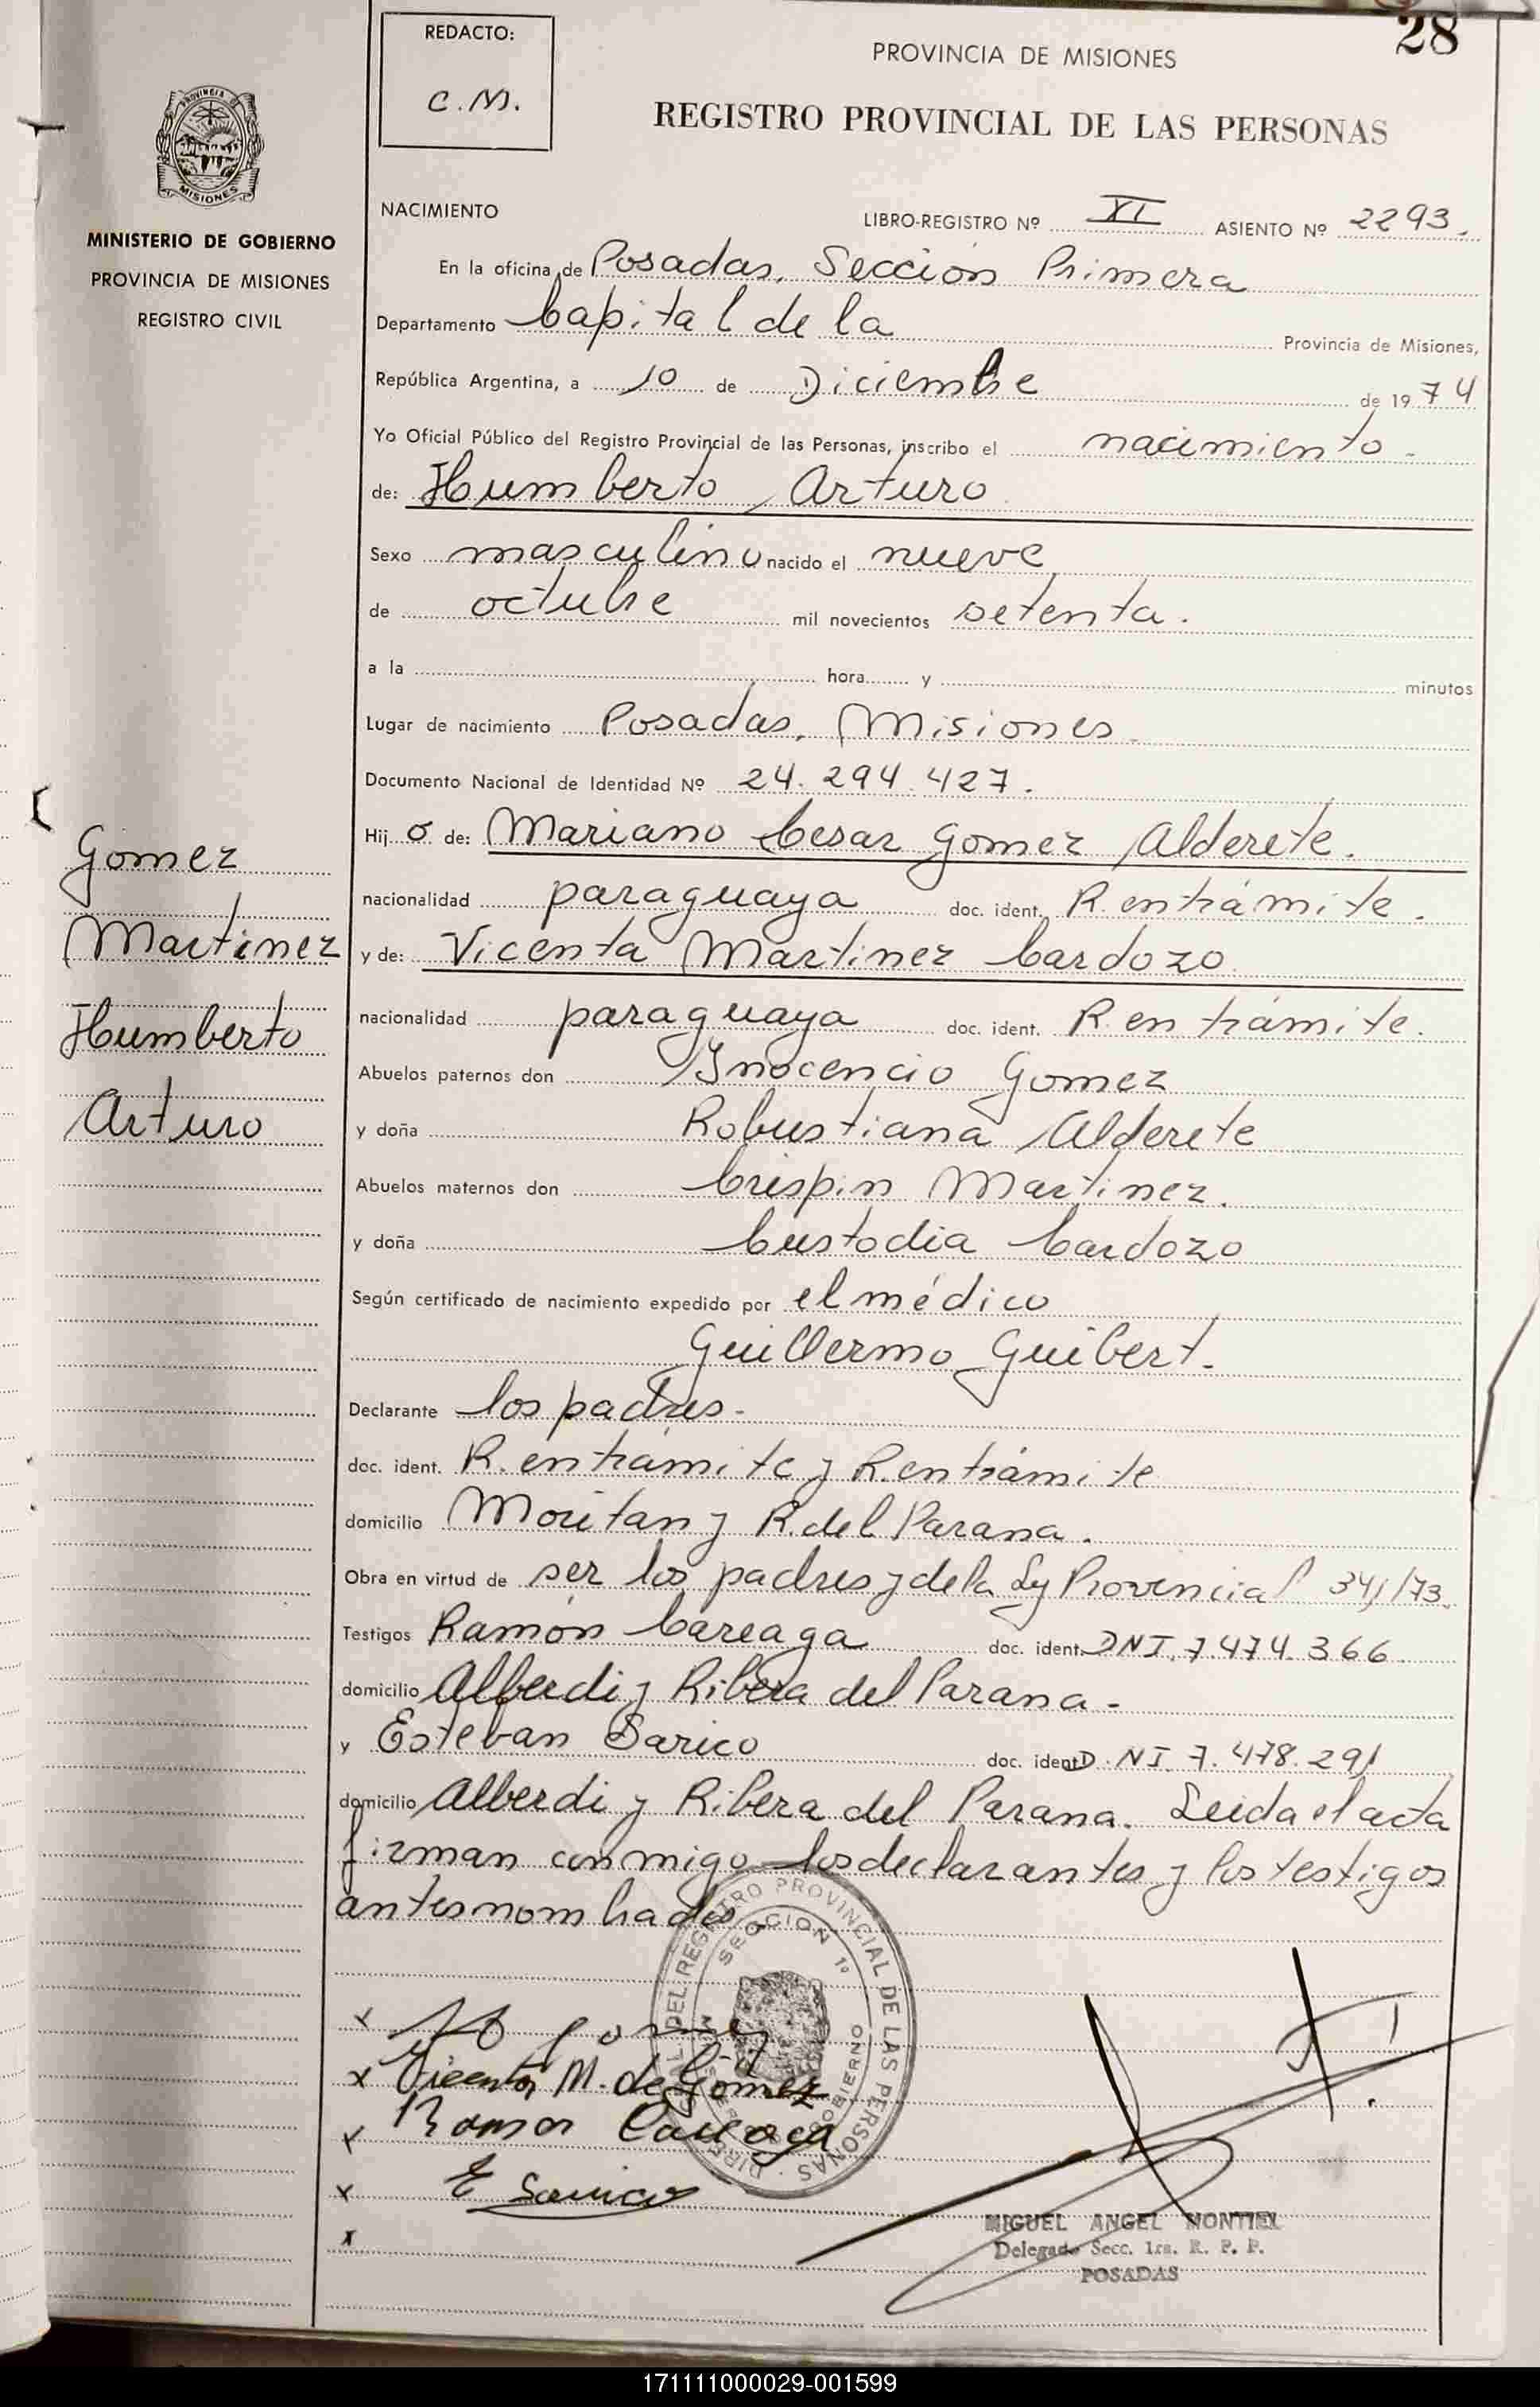 28
REDACTO:
C.M.
PROVINCIA DE MISIONES
REGISTRO PROVINCIAL DE LAS PERSONAS
PROVINCIA DE
MISIONES
MINISTERIO DE GOBIERNO
PROVINCIA DE MISIONES
REGISTRO CIVIL
NACIMIENTO
LIBRO-REGISTRO Nº XI ASIENTO Nº 2293.
En la oficina de Posadas, Sección Primera
Departamento Capital de la Provincia de Misiones,
República Argentina, a 10 de Diciembre de 1974
Yo Oficial Público del Registro Provincial de las Personas, inscribo el nacimiento
de: Humberto Arturo
Sexo masculino nacido el nueve
de octubre mil novecientos setenta.
a la hora y minutos
Lugar de nacimiento Posadas, Misiones
Documento Nacional de Identidad Nº 24.294.427.
Hijo de: Mariano Cesar Gomez Alderete.
nacionalidad paraguaya doc. ident. R. en trámite.
y de: Vicenta Martinez Cardozo
nacionalidad paraguaya doc. ident. R. en trámite.
Abuelos paternos don Inocencio Gomez
y doña Robustiana Alderete
Abuelos maternos don Crispin Martinez.
y doña Custodia Cardozo
Según certificado de nacimiento expedido por el médico
Guillermo Guibert.
Declarante los padres-
doc. ident. R. en trámite y R. en trámite
domicilio y R. del Parana.
Obra en virtud de ser los padres y de la Ley Provincial 341/73.
Testigos Ramón Careaga doc. ident. DNI. 7.474.366
domicilio Alberdi y Ribera del Parana-
y Esteban Sarico doc. ident D.NI. 7.478.291
domicilio Alberdi y Ribera del Parana. Leida el acta
firman conmigo los declarantes y los testigos
antesnombrados
Gomez
Martinez
Humberto
Arturo
DEL REGISTRO PROVINCIAL DE LAS PERSONAS
SECCION 1º
GOBIERNO
x
x Vicenta M. de Gómez
x Ramon Careaga
x E Sarico
x
MIGUEL ANGEL MONTIEL
Delegado Secc. 1ra. R. P. P.
POSADAS
171111000029-001599